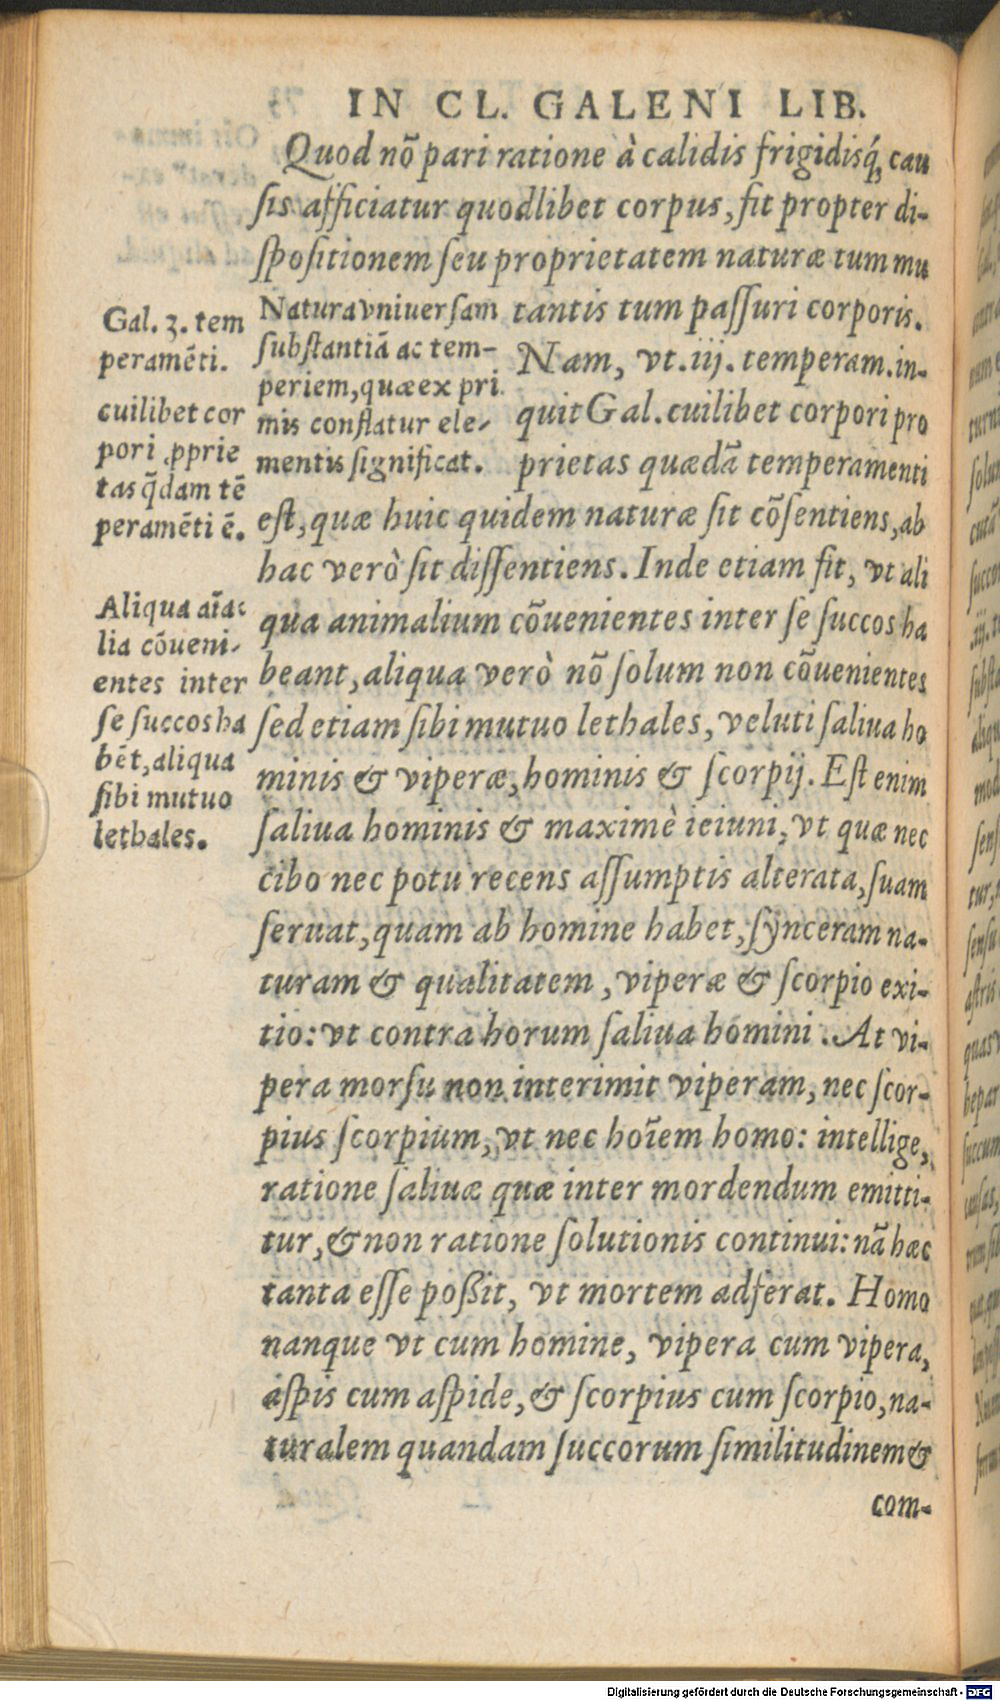 IN CL. GALENI LIB.
Quod nõ pari ratione à calidis frigidisq́, cau
sis afficiatur quodlibet corpus, fit propter di-
spositionem seu proprietatem naturæ tum mu
tantis tum passuri corporis.
Nam, vt .iij. temperam. in-
quit Gal. cuilibet corpori pro
prietas quædã temperamenti
est, quæ huic quidem naturæ sit cõsentiens, ab
hac verò sit dissentiens. Inde etiam fit, vt ali
qua animalium cõuenientes inter se succos ha
beant, aliqua verò nõ solum non cõuenientes
sed etiam sibi mutuo lethales, veluti saliua ho
minis & viperæ, hominis & scorpij. Est enim
saliua hominis & maximè ieiuni, vt quæ nec
cibo nec potu recens assumptis alterata, suam
seruat, quam ab homine habet, synceram na-
turam & qualitatem, viperæ & scorpio exi-
tio: vt contra horum saliua homini. At vi-
pera morsu non interimit viperam, nec scor-
pius scorpium, vt nec hoĩem homo: intellige,
ratione saliuæ quæ inter mordendum emitti-
tur, & non ratione solutionis continui: nã hæc
tanta esse poßit, vt mortem adferat. Homo
nanque vt cum homine, vipera cum vipera,
aspis cum aspide, & scorpius cum scorpio, na-
turalem quandam succorum similitudinem &
com-
Natura vniuersam
substantiã ac tem-
periem, quæ ex pri
mis constatur ele-
mentis significat.
Gal. 3. tem
peramẽti.
cuilibet cor
pori ꝓprie
tas q̃dam tẽ
peramẽti ẽ.
Aliqua aĩa-
lia cõueni-
entes inter
se succos ha
bẽt, aliqua
sibi mutuo
lethales.
Digitalisierung gefördert durch die Deutsche Forschungsgemeinschaft - DFG